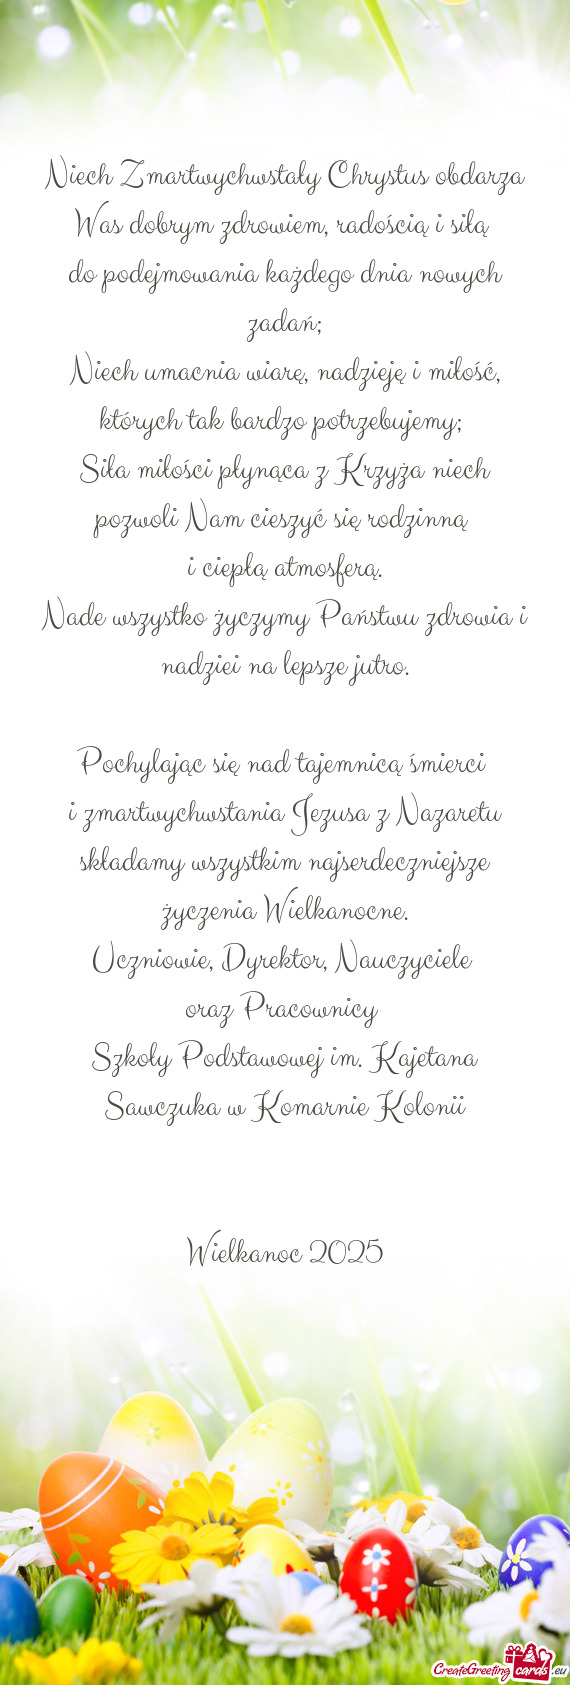 Niech Zmartwychwstały Chrystus obdarza
Was dobrym zdrowiem, radością i siłą
do podejmowania każdego dnia nowych
zadań;
Niech umacnia wiarę, nadzieję i miłość,
których tak bardzo potrzebujemy;
Siła miłości płynąca z Krzyża niech
pozwoli Nam cieszyć się rodzinną
i ciepłą atmosferą.
Nade wszystko życzymy Państwu zdrowia i
nadziei na lepsze jutro.
Pochylając się nad tajemnicą śmierci
i zmartwychwstania Jezusa z Nazaretu
składamy wszystkim najserdeczniejsze
życzenia Wielkanocne.
Uczniowie, Dyrektor, Nauczyciele
oraz Pracownicy
Szkoły Podstawowej im. Kajetana
Sawczuka w Komarnie Kolonii
Wielkanoc 2025
CreateGreetingcards.eu